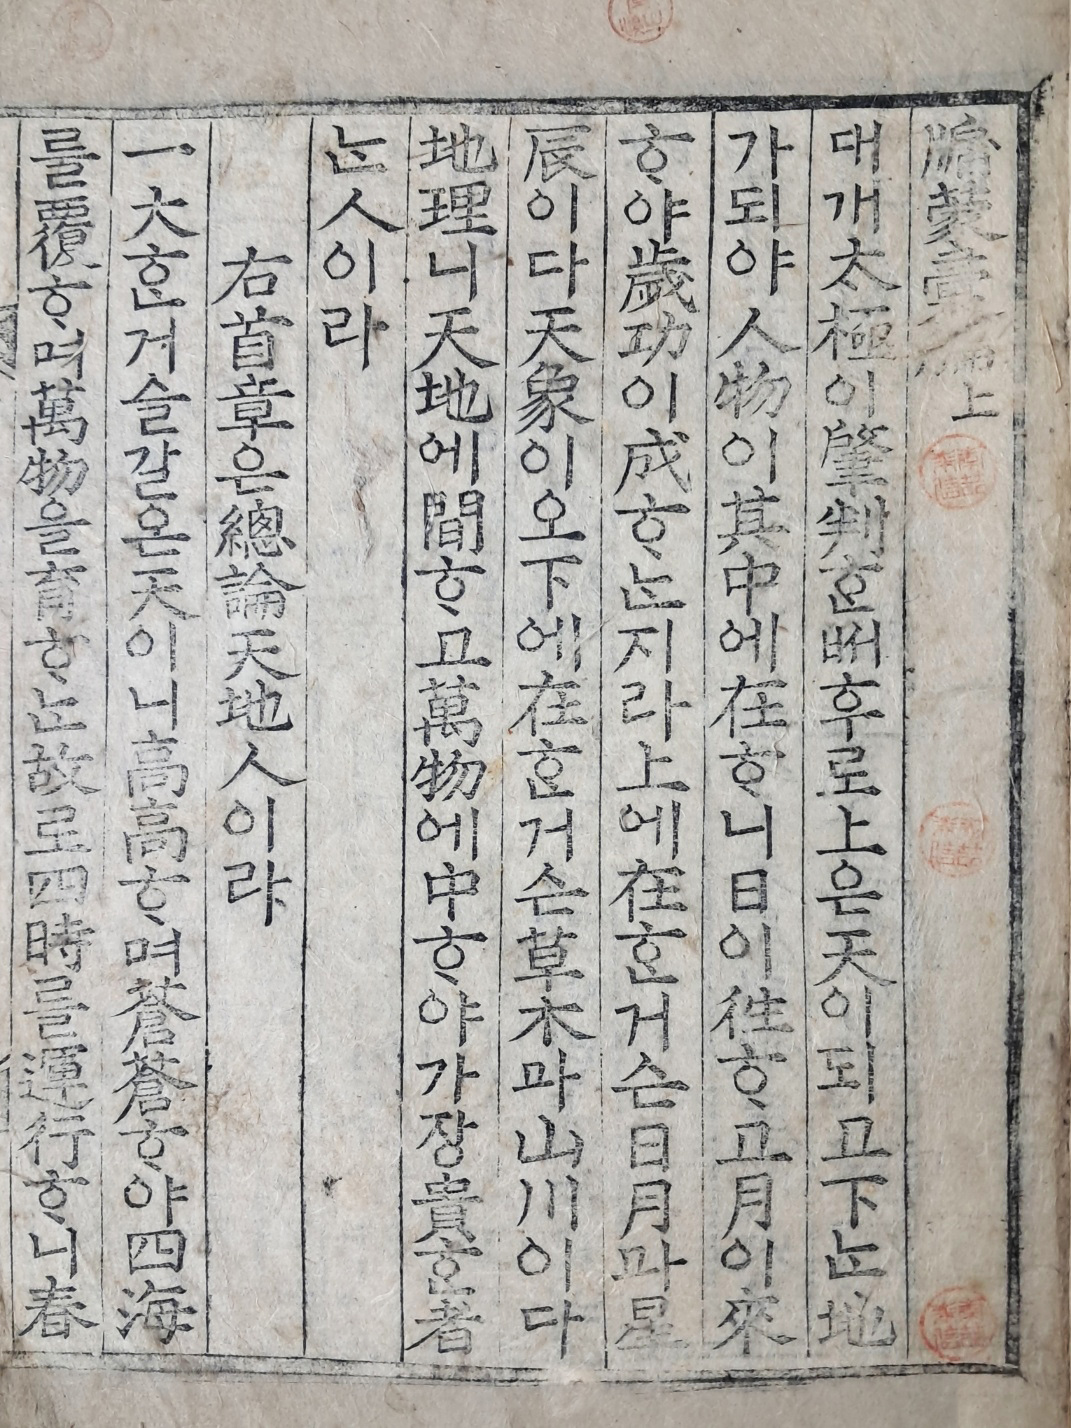 牖蒙彙編上
대개太極이肇判ᄒᆞᆫ배후로上은天이되고下ᄂᆞᆫ地
가되야人物이其中에在ᄒᆞ니日이徃ᄒᆞ고月이來
ᄒᆞ야歲功이成ᄒᆞᄂᆞᆫ지라上에在ᄒᆞᆫ거슨日月과星
辰이다天象이오下에在ᄒᆞᆫ거슨草木과山川이다
地理니天地에間ᄒᆞ고萬物에中ᄒᆞ야가장貴ᄒᆞᆫ者
ᄂᆞᆫ人이라
右首章은總論天地人이라
一大ᄒᆞᆫ거슬갈온天이니高高ᄒᆞ며蒼蒼ᄒᆞ야四海
를覆ᄒᆞ며萬物을育ᄒᆞᄂᆞᆫ故로四時를運行ᄒᆞ니春